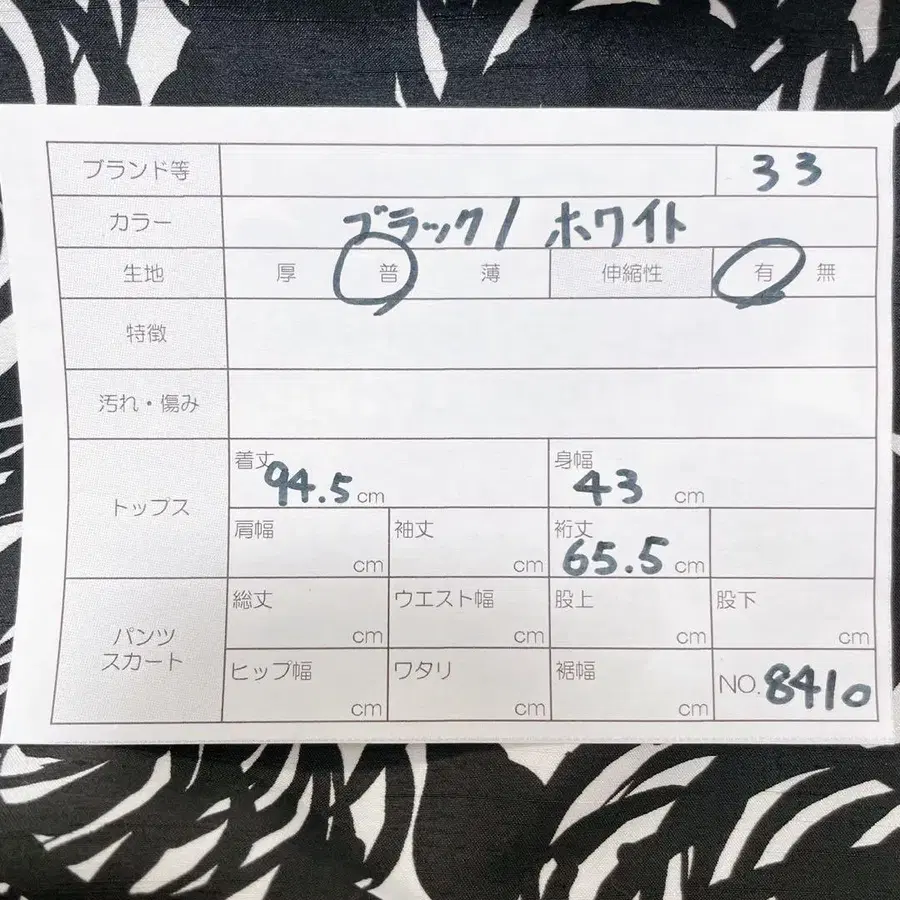 ブランド等 33
カラー ブラック/ホワイト
生地 厚 普 薄 伸縮性 有 無
特徴
汚れ・傷み
トップス
着丈 94.5cm 身幅 43 cm
肩幅 cm 袖丈 cm 裄丈 65.5 cm
パンツ
スカート
総丈 cm ウエスト幅 cm 股上 cm 股下 cm
ヒップ幅 cm ワタリ cm 裾幅 cm NO.8410